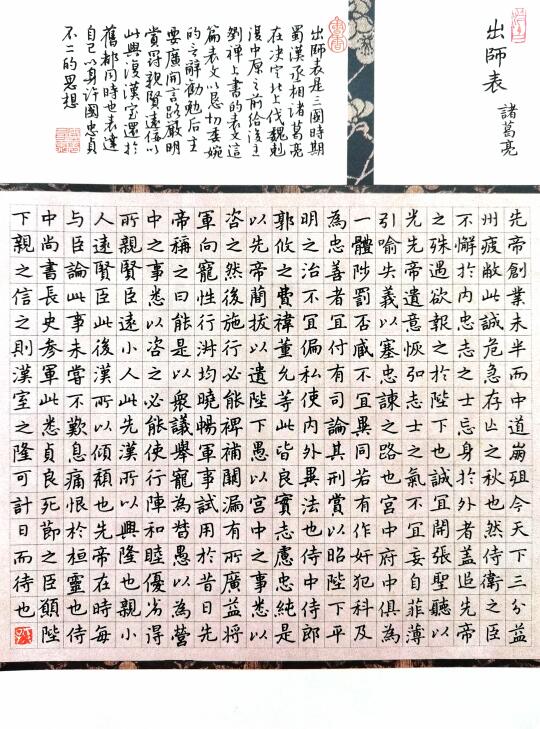 出師表
諸葛亮
出師表是三國時期
蜀漢丞相諸葛亮
在決定北上伐魏剋
復中原之前給後主
劉禪上書的表文這
篇表文以恳切委婉
的言辭勸勉后主
要廣開言路嚴明
賞罰親賢遠佞以
此興復漢室還於
舊都同時也表達
自己以身許國忠貞
不二的思想
先帝創業未半而中道崩殂今天下三分益
州疲敝此誠危急存亡之秋也然侍衛之臣
不懈於內忠志之士忘身於外者蓋追先帝
之殊遇欲報之於陛下也誠宜開張聖聽以
光先帝遺意恢弘志士之氣不宜妄自菲薄
引喻失義以塞忠諫之路也宮中府中俱為
一體陟罰否臧不宜異同若有作奸犯科及
為忠善者宜付有司論其刑賞以昭陛下平
明之治不宜偏私使內外異法也侍中侍郎
郭攸之費禕董允等此皆良實志慮忠純是
以先帝蕳拔以遺陛下愚以宮中之事悉以
咨之然後施行必能裨補闕漏有所廣益將
軍向寵性行淑均曉暢軍事試用於昔日先
帝稱之曰能是以眾議舉寵為督愚以為營
中之事悉以咨之必能使行陣和睦優劣得
所親賢臣遠小人此先漢所以興隆也親小
人遠賢臣此後漢所以傾頹也先帝在時每
与臣論此事未嘗不歎息痛恨於桓靈也侍
中尚書長史參軍此悉貞良死節之臣願陛
下親之信之則漢室之隆可計日而待也